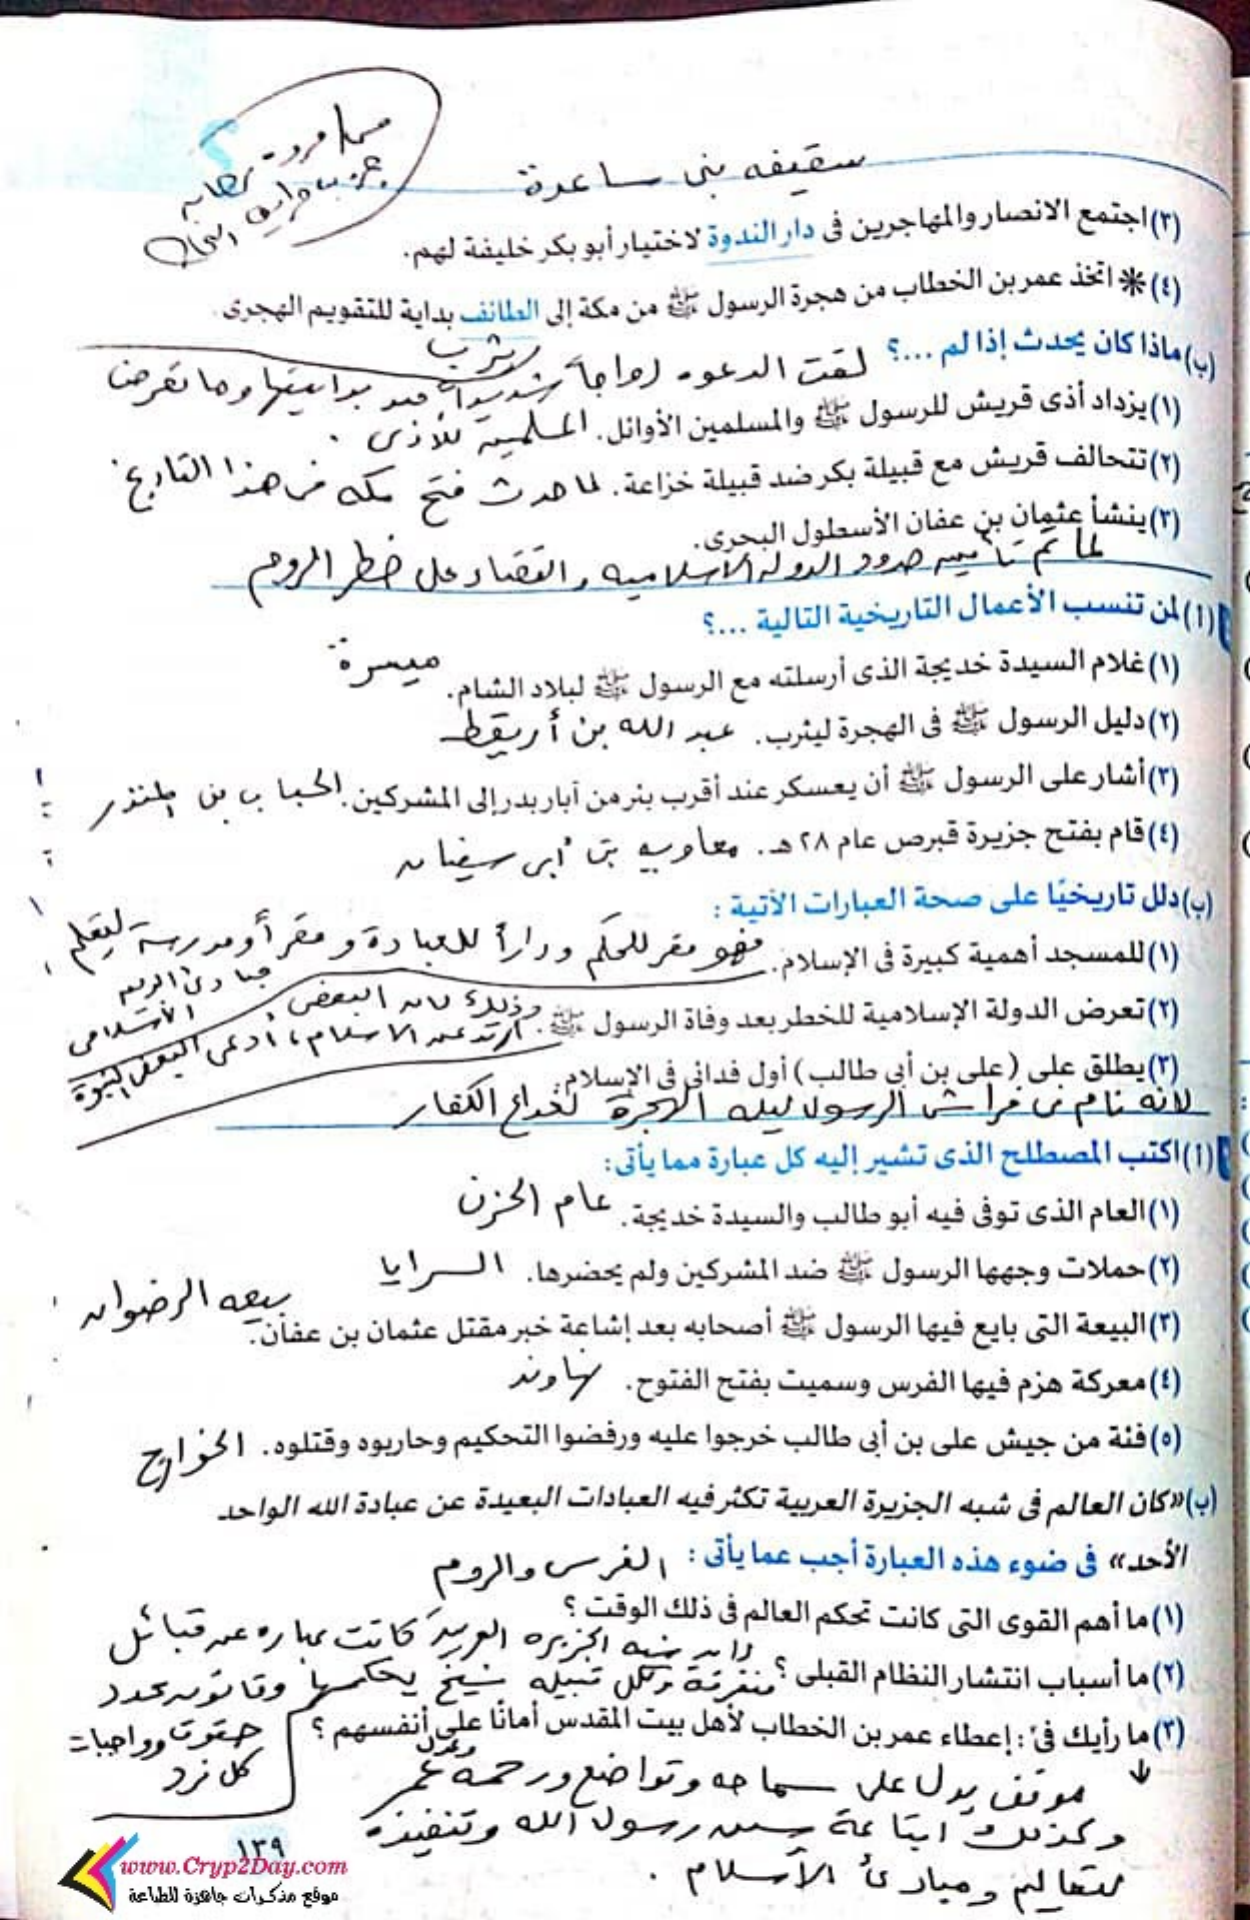 سقيفه بنى ساعدة
(٣) اجتمع الانصار والمهاجرين فى دار الندوة لاختيار أبو بكر خليفة لهم.
(٤) * اتخذ عمر بن الخطاب من هجرة الرسول ﷺ من مكة إلى الطائف بداية للتقويم الهجرى.
يثرب
(ب) ماذا كان يحدث إذا لم ...؟
لقت الدعوه رواجاً شديداً منذ بدايتها وما تعرض
(١) يزداد أذى قريش للرسول ﷺ والمسلمين الأوائل. المسلمين للأذى.
(٢) تتحالف قريش مع قبيلة بكر ضد قبيلة خزاعة. لما حدث فتح مكه فى هذا التاريخ
(٣) ينشأ عثمان بن عفان الأسطول البحرى.
لما تم تأمين حدود الدوله الاسلاميه والقضاء على خطر الروم
(أ) لمن تنسب الأعمال التاريخية التالية ...؟
(١) غلام السيدة خديجة الذى أرسلته مع الرسول ﷺ لبلاد الشام. ميسرة
(٢) دليل الرسول ﷺ فى الهجرة ليثرب. عبد الله بن أريقط
(٣) أشار على الرسول ﷺ أن يعسكر عند أقرب بئر من آبار بدر إلى المشركين. الحباب بن المنذر
(٤) قام بفتح جزيرة قبرص عام ٢٨ هـ. معاويه بن أبى سفيان
(ب) دلل تاريخيًا على صحة العبارات الآتية :
(١) للمسجد أهمية كبيرة فى الإسلام. فهو مقر للحكم وداراً للعبادة ومقرأ ومدرسة ليتعلم
مبادئ الدين الاسلامى
(٢) تعرض الدولة الإسلامية للخطر بعد وفاة الرسول ﷺ. وذلك لان البعض
ارتد عن الاسلام، أدعى البعض النبوة
(٣) يطلق على (على بن أبى طالب) أول فدائى فى الإسلام.
لانه نام فى فراش الرسول ليله الهجرة لخداع الكفار
(أ) اكتب المصطلح الذى تشير إليه كل عبارة مما يأتى:
(١) العام الذى توفى فيه أبو طالب والسيدة خديجة. عام الحزن
(٢) حملات وجهها الرسول ﷺ ضد المشركين ولم يحضرها. السرايا
(٣) البيعة التى بايع فيها الرسول ﷺ أصحابه بعد إشاعة خبر مقتل عثمان بن عفان. بيعه الرضوان
(٤) معركة هزم فيها الفرس وسميت بفتح الفتوح. نهاوند
(٥) فئة من جيش على بن أبى طالب خرجوا عليه ورفضوا التحكيم وحاربوه وقتلوه. الخوارج
(ب) «كان العالم فى شبه الجزيرة العربية تكثر فيه العبادات البعيدة عن عبادة الله الواحد
الأحد» فى ضوء هذه العبارة أجب عما يأتى :
الفرس والروم
(١) ما أهم القوى التى كانت تحكم العالم فى ذلك الوقت ؟
لان شبه الجزيره العربيه كانت عباره عن قبائل
(٢) ما أسباب انتشار النظام القبلى ؟ متفرقة ولكل قبيله شيخ يحكمها وقانون يحدد
حقوق وواجبات
كل فرد
(٣) ما رأيك فى : إعطاء عمر بن الخطاب لأهل بيت المقدس أمانًا على أنفسهم ؟
موقف يدل على سماحه وتواضع ورحمة وعدل عمر
وكذلك اتباعة سنن رسول الله وتنفيذه
لتعاليم ومبادئ الاسلام.
١٣٩
www.Cryp2Day.com
موقع مذكرات جاهزة للطباعة